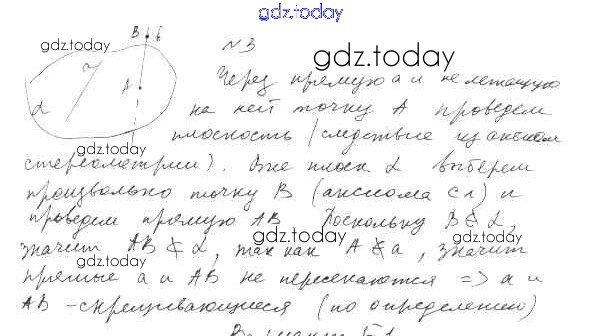 gdz.today
B b
№3
gdz.today
gdz.today
Через прямую a и не лежащую
a
A
α
на ней точку A проведем
плоскость (следствие из аксиом
gdz.today
стереометрии). Вне плоск α выберем
произвольно точку B (аксиома с1) и
проведем прямую AB Поскольку B ∉ α,
gdz.today
gdz.today
значит AB ⊄ α, так как A ∉ a, значит
прямые a и AB не пересекаются => a и
AB - скрещивающиеся (по определению)